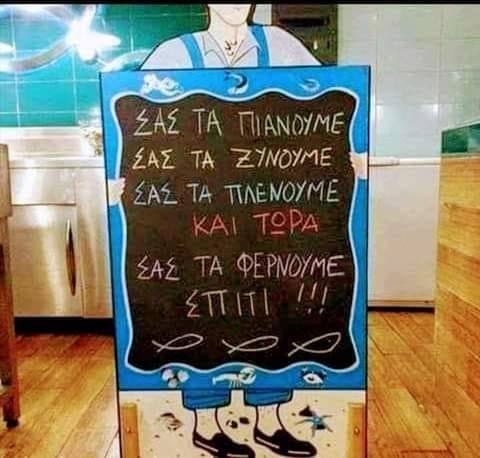 ΣΑΣ ΤΑ ΠΙΑΝΟΥΜΕ
ΣΑΣ ΤΑ ΞΥΝΟΥΜΕ
ΣΑΣ ΤΑ ΠΛΕΝΟΥΜΕ
ΚΑΙ ΤΩΡΑ
ΣΑΣ ΤΑ ΦΕΡΝΟΥΜΕ
ΣΠΙΤΙ !!!